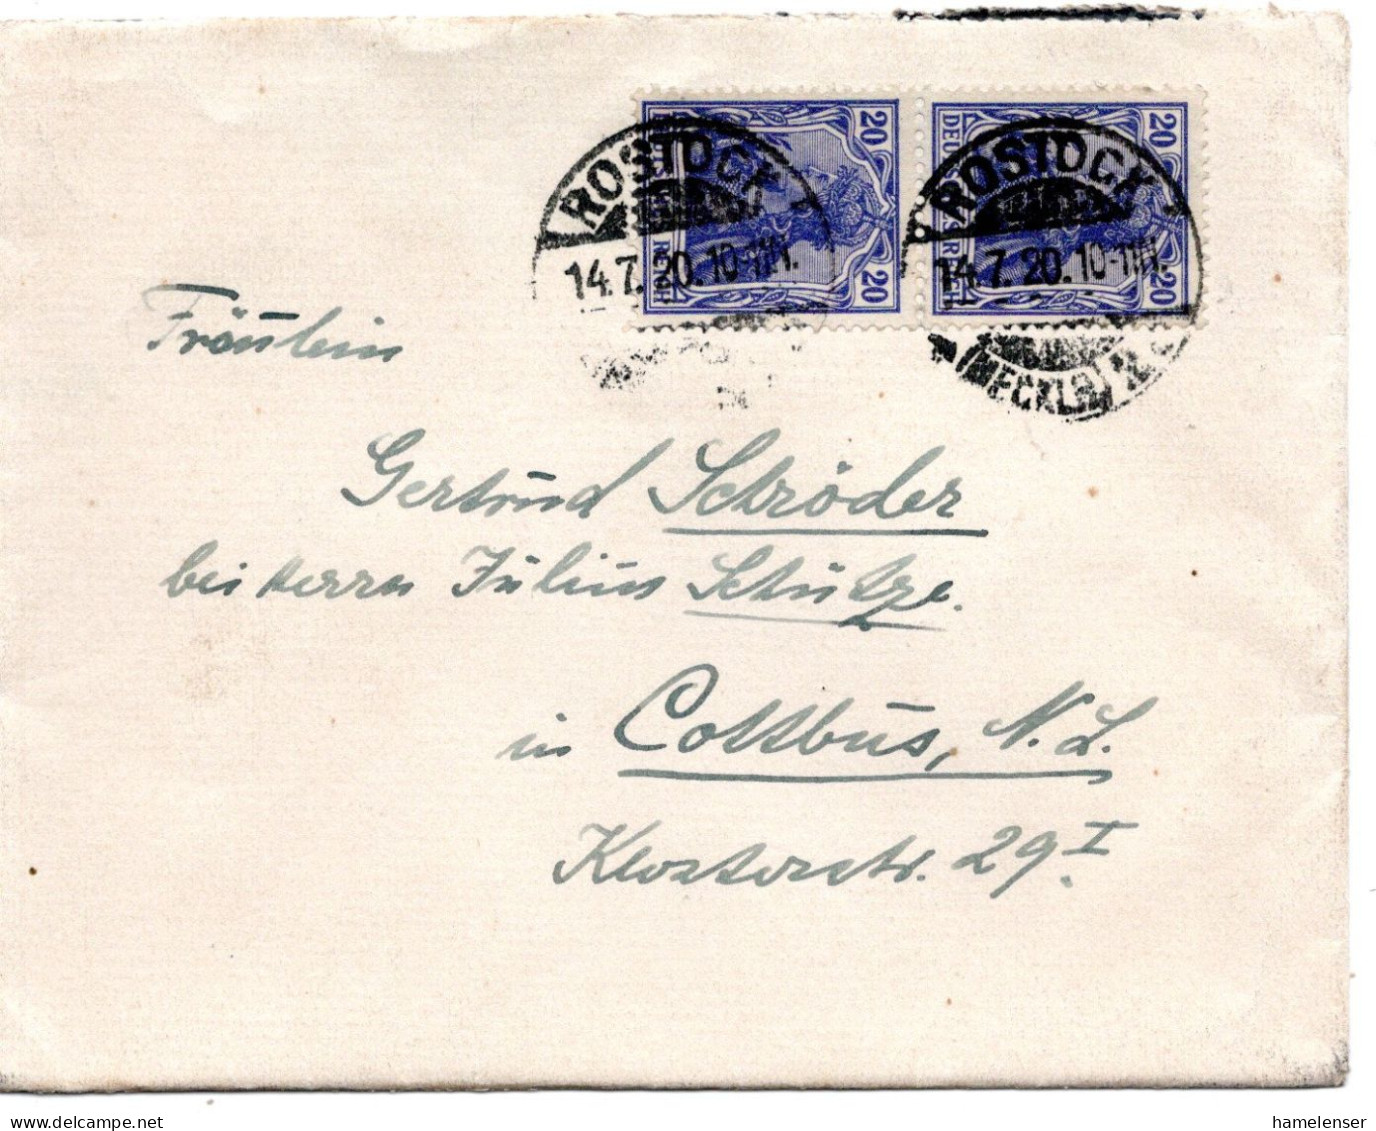 20 20
DEUTSCHES REICH
20 20
DEUTSCHES REICH
ROSTOCK
14.7.20.10-11N.
ROSTOCK
14.7.20.10-11N.
(MECKLB)
Fräulein
Gertrud Schröder
bei Herrn Julius Schütze.
in Cottbus, N.L.
Klosterstr. 29 I.
hamelenser